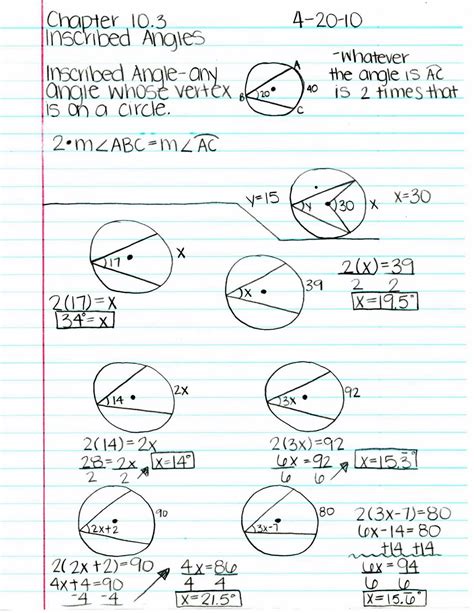 Chapter 10.3
4-20-10
Inscribed Angles
Inscribed Angle-any
angle whose vertex
is on a circle.
A
B
20°
40
C
-Whatever
the angle is AC
is 2 times that
2•m∠ABC=m∠AC
y=15
y
30
x
x=30
17
x
2(17)=x
34°=x
x
39
2(x)=39
2 2
x=19.5°
14
2x
2(14)=2x
28=2x
2 2
x=14°
3x
92
2(3x)=92
6x=92
6 6
x=15.3°
2x+2
90
2(2x+2)=90
4x+4=90
-4 -4
4x=86
4 4
x=21.5°
3x-7
80
2(3x-7)=80
6x-14=80
+14 +14
6x=94
6 6
x=15.6°